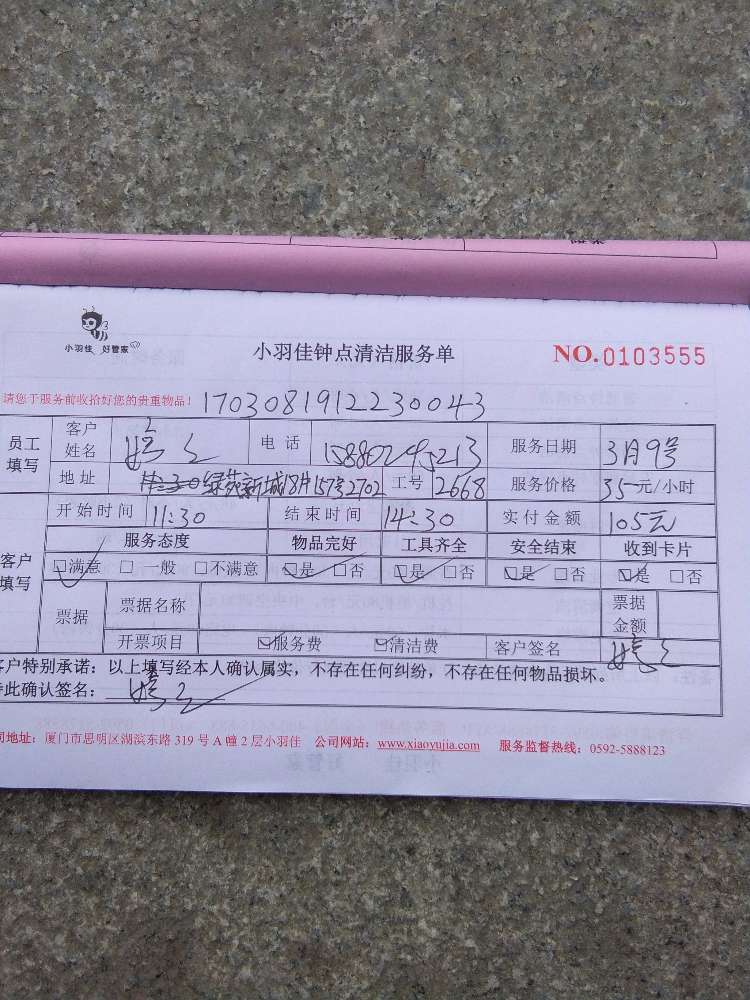 小羽佳 好管家
小羽佳钟点清洁服务单
NO.0103555
请您于服务前收拾好您的贵重物品! 1703081912230043
员工填写 客户姓名 电话 15880295213 服务日期 3月9号
地址 绿苑新城18#157号2702 工号 2668 服务价格 35元/小时
开始时间 11:30 结束时间 14:30 实付金额 105元
客户填写 服务态度 物品完好 工具齐全 安全结束 收到卡片
满意 一般 不满意 是 否 是 否 是 否 是 否
票据 票据名称 票据金额
开票项目 服务费 清洁费 客户签名
客户特别承诺:以上填写经本人确认属实,不存在任何纠纷,不存在任何物品损坏。
特此确认签名:
司地址:厦门市思明区湖滨东路 319 号 A 幢 2 层小羽佳 公司网站:www.xiaoyujia.com 服务监督热线:0592-5888123